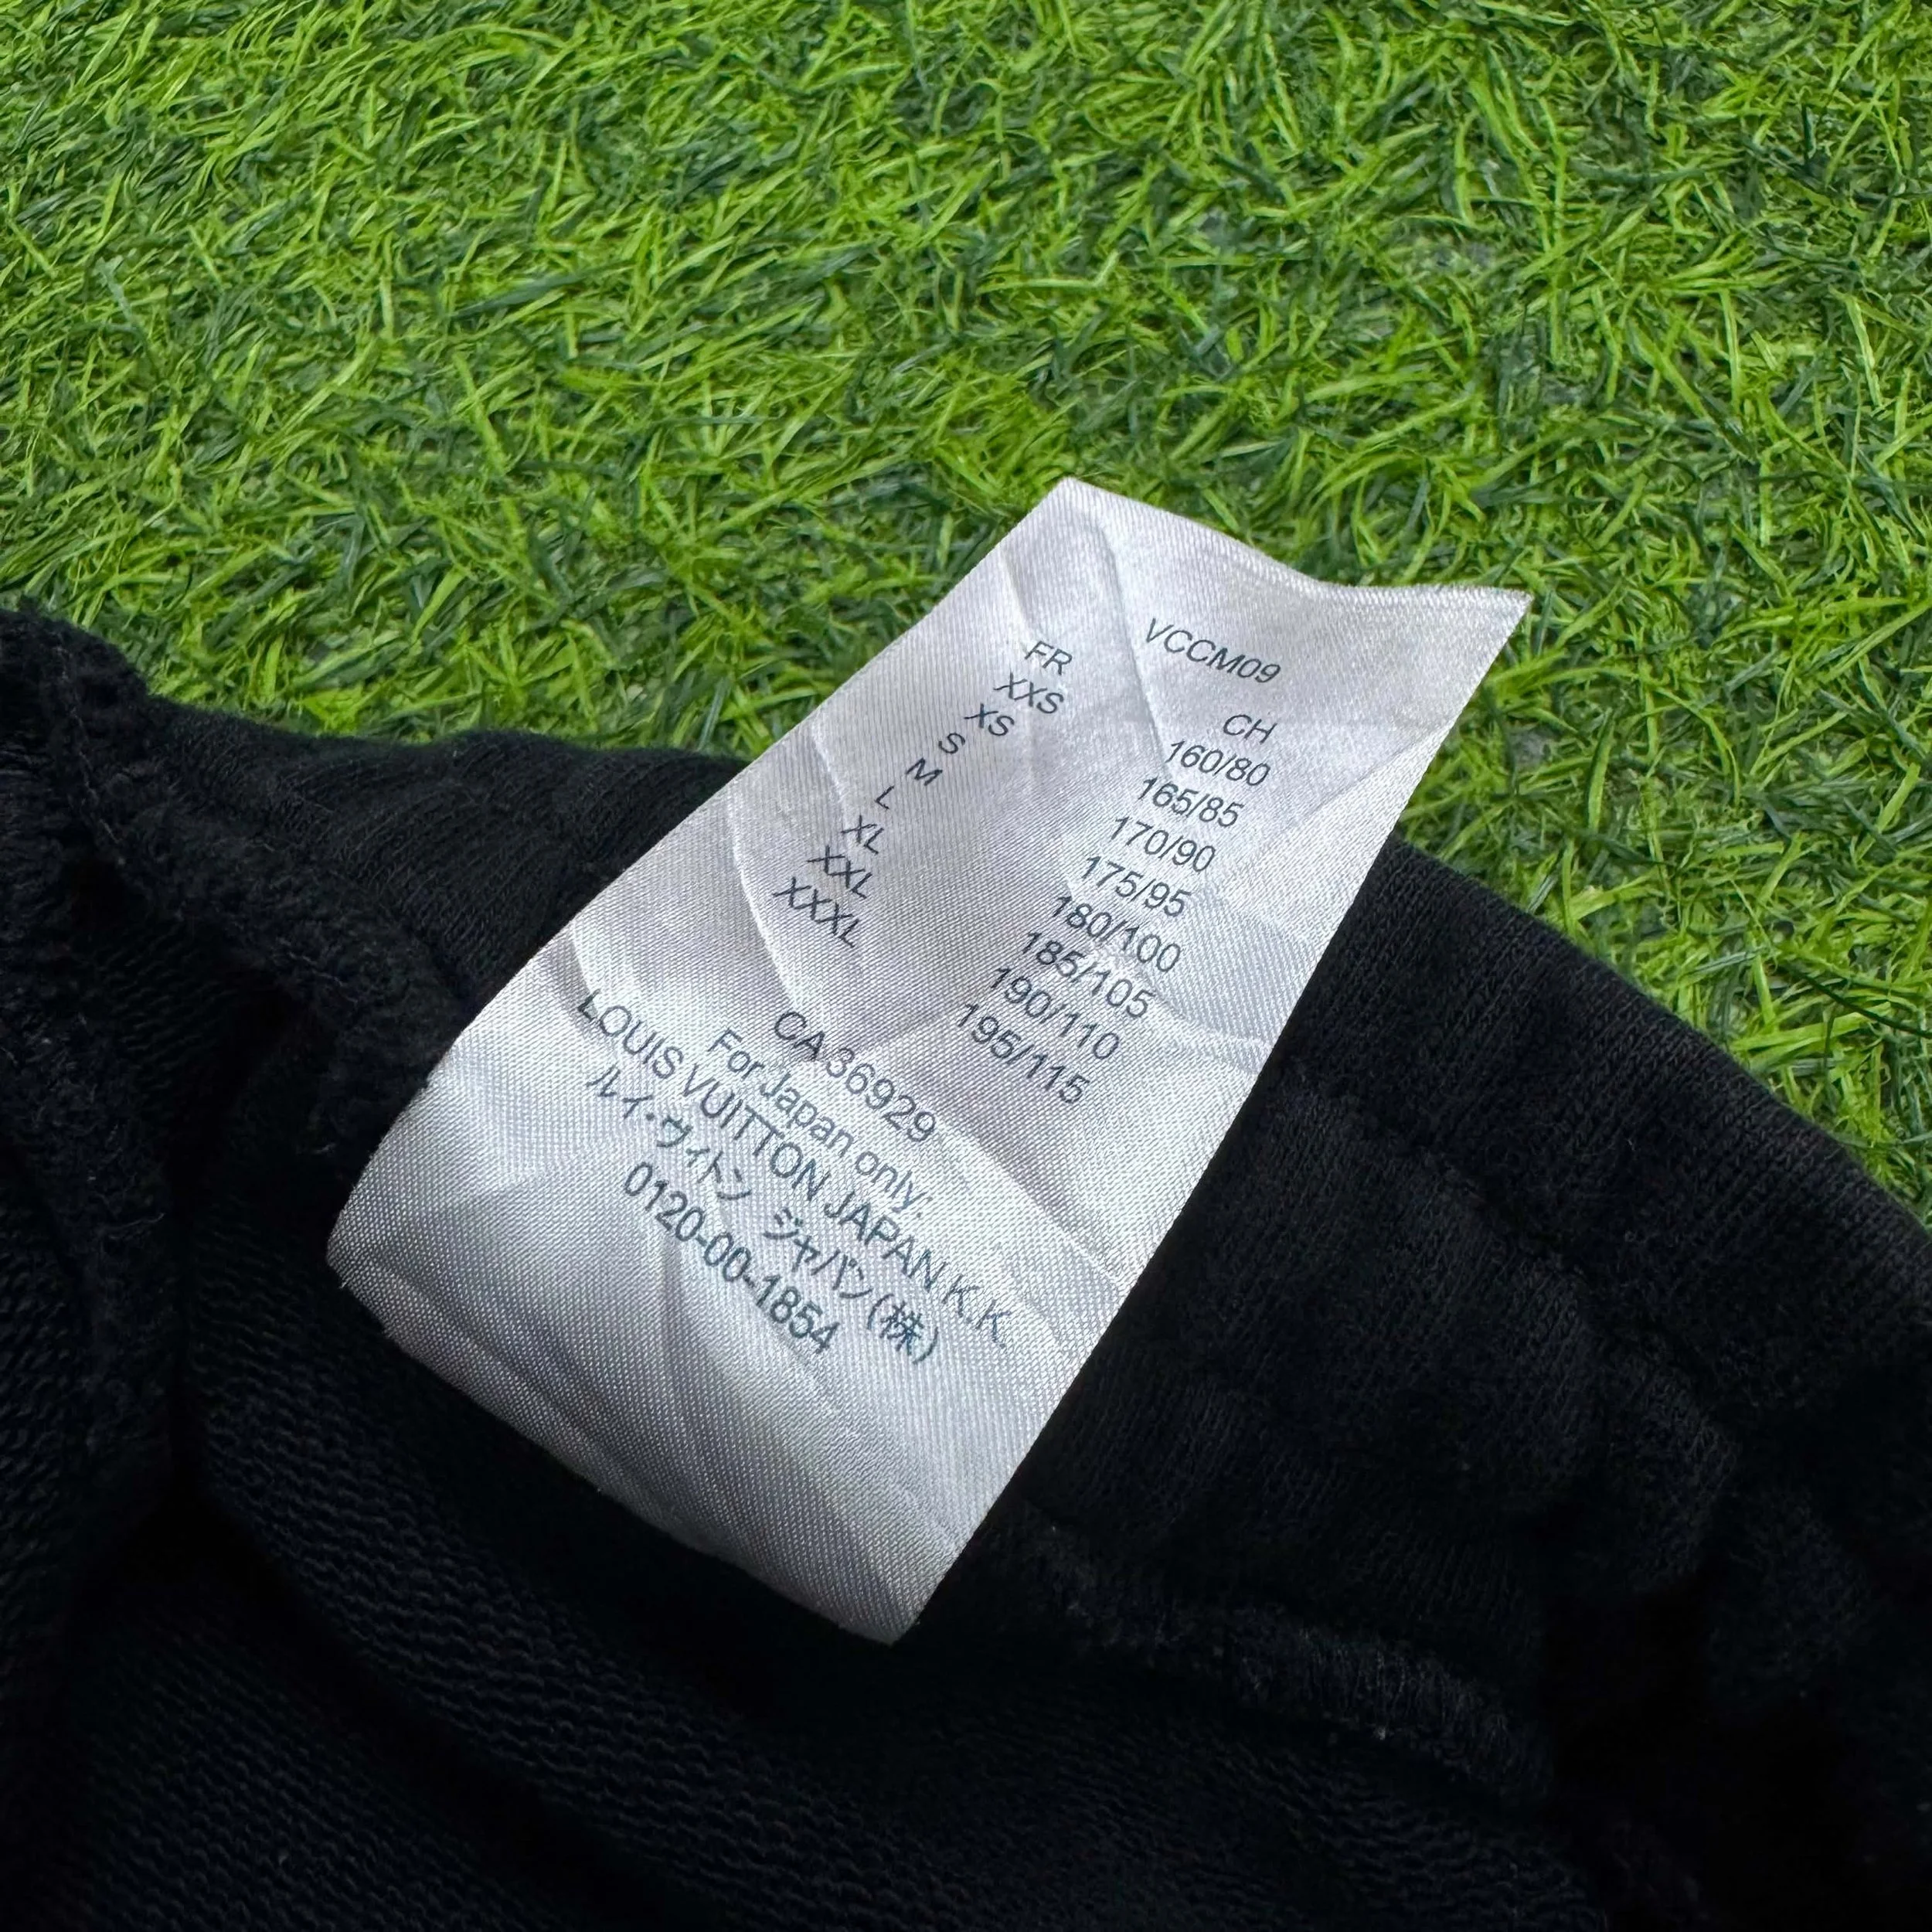 VCCM09
FR CH
XXS 160/80
XS 165/85
S 170/90
M 175/95
L 180/100
XL 185/105
XXL 190/110
XXXL 195/115
CA 36929
For Japan only:
LOUIS VUITTON JAPAN K.K.
ルイ・ヴィトン ジャパン(株)
0120-00-1854